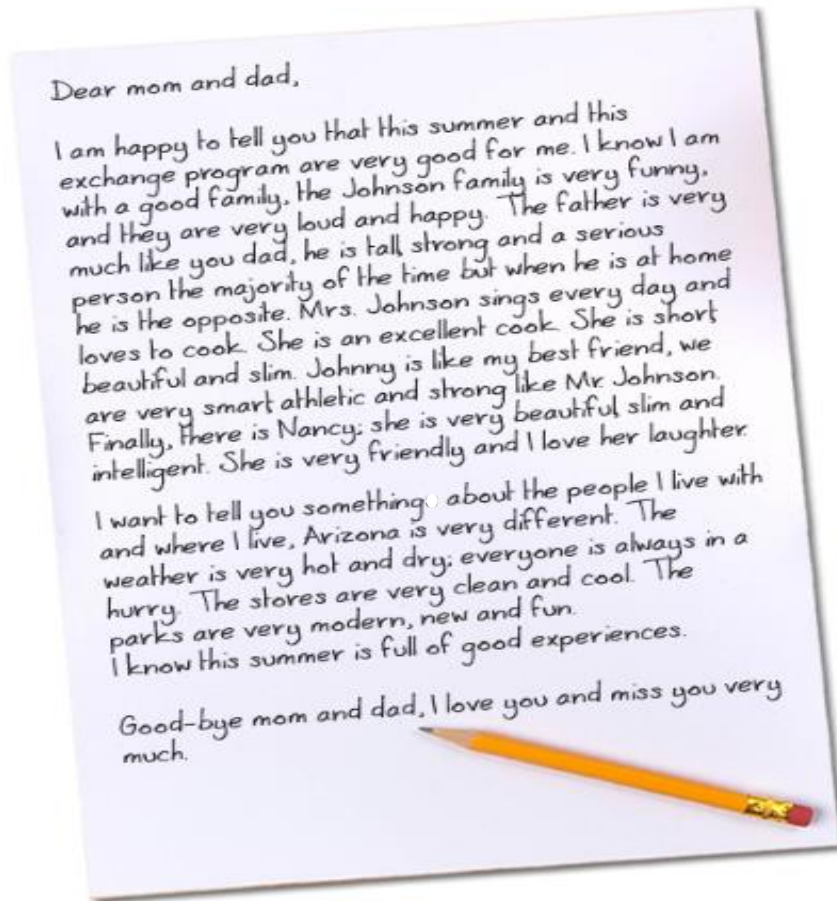 Dear mom and dad,
I am happy to tell you that this summer and this
exchange program are very good for me. I know I am
with a good family, the Johnson family is very funny,
and they are very loud and happy. The father is very
much like you dad, he is tall, strong and a serious
person the majority of the time but when he is at home
he is the opposite. Mrs. Johnson sings every day and
loves to cook. She is an excellent cook. She is short
beautiful and slim. Johnny is like my best friend, we
are very smart athletic and strong like Mr Johnson.
Finally, there is Nancy; she is very beautiful, slim and
intelligent. She is very friendly and I love her laughter.
I want to tell you something about the people I live with
and where I live, Arizona is very different. The
weather is very hot and dry; everyone is always in a
hurry. The stores are very clean and cool. The
parks are very modern, new and fun.
I know this summer is full of good experiences.
Good-bye mom and dad, I love you and miss you very
much.